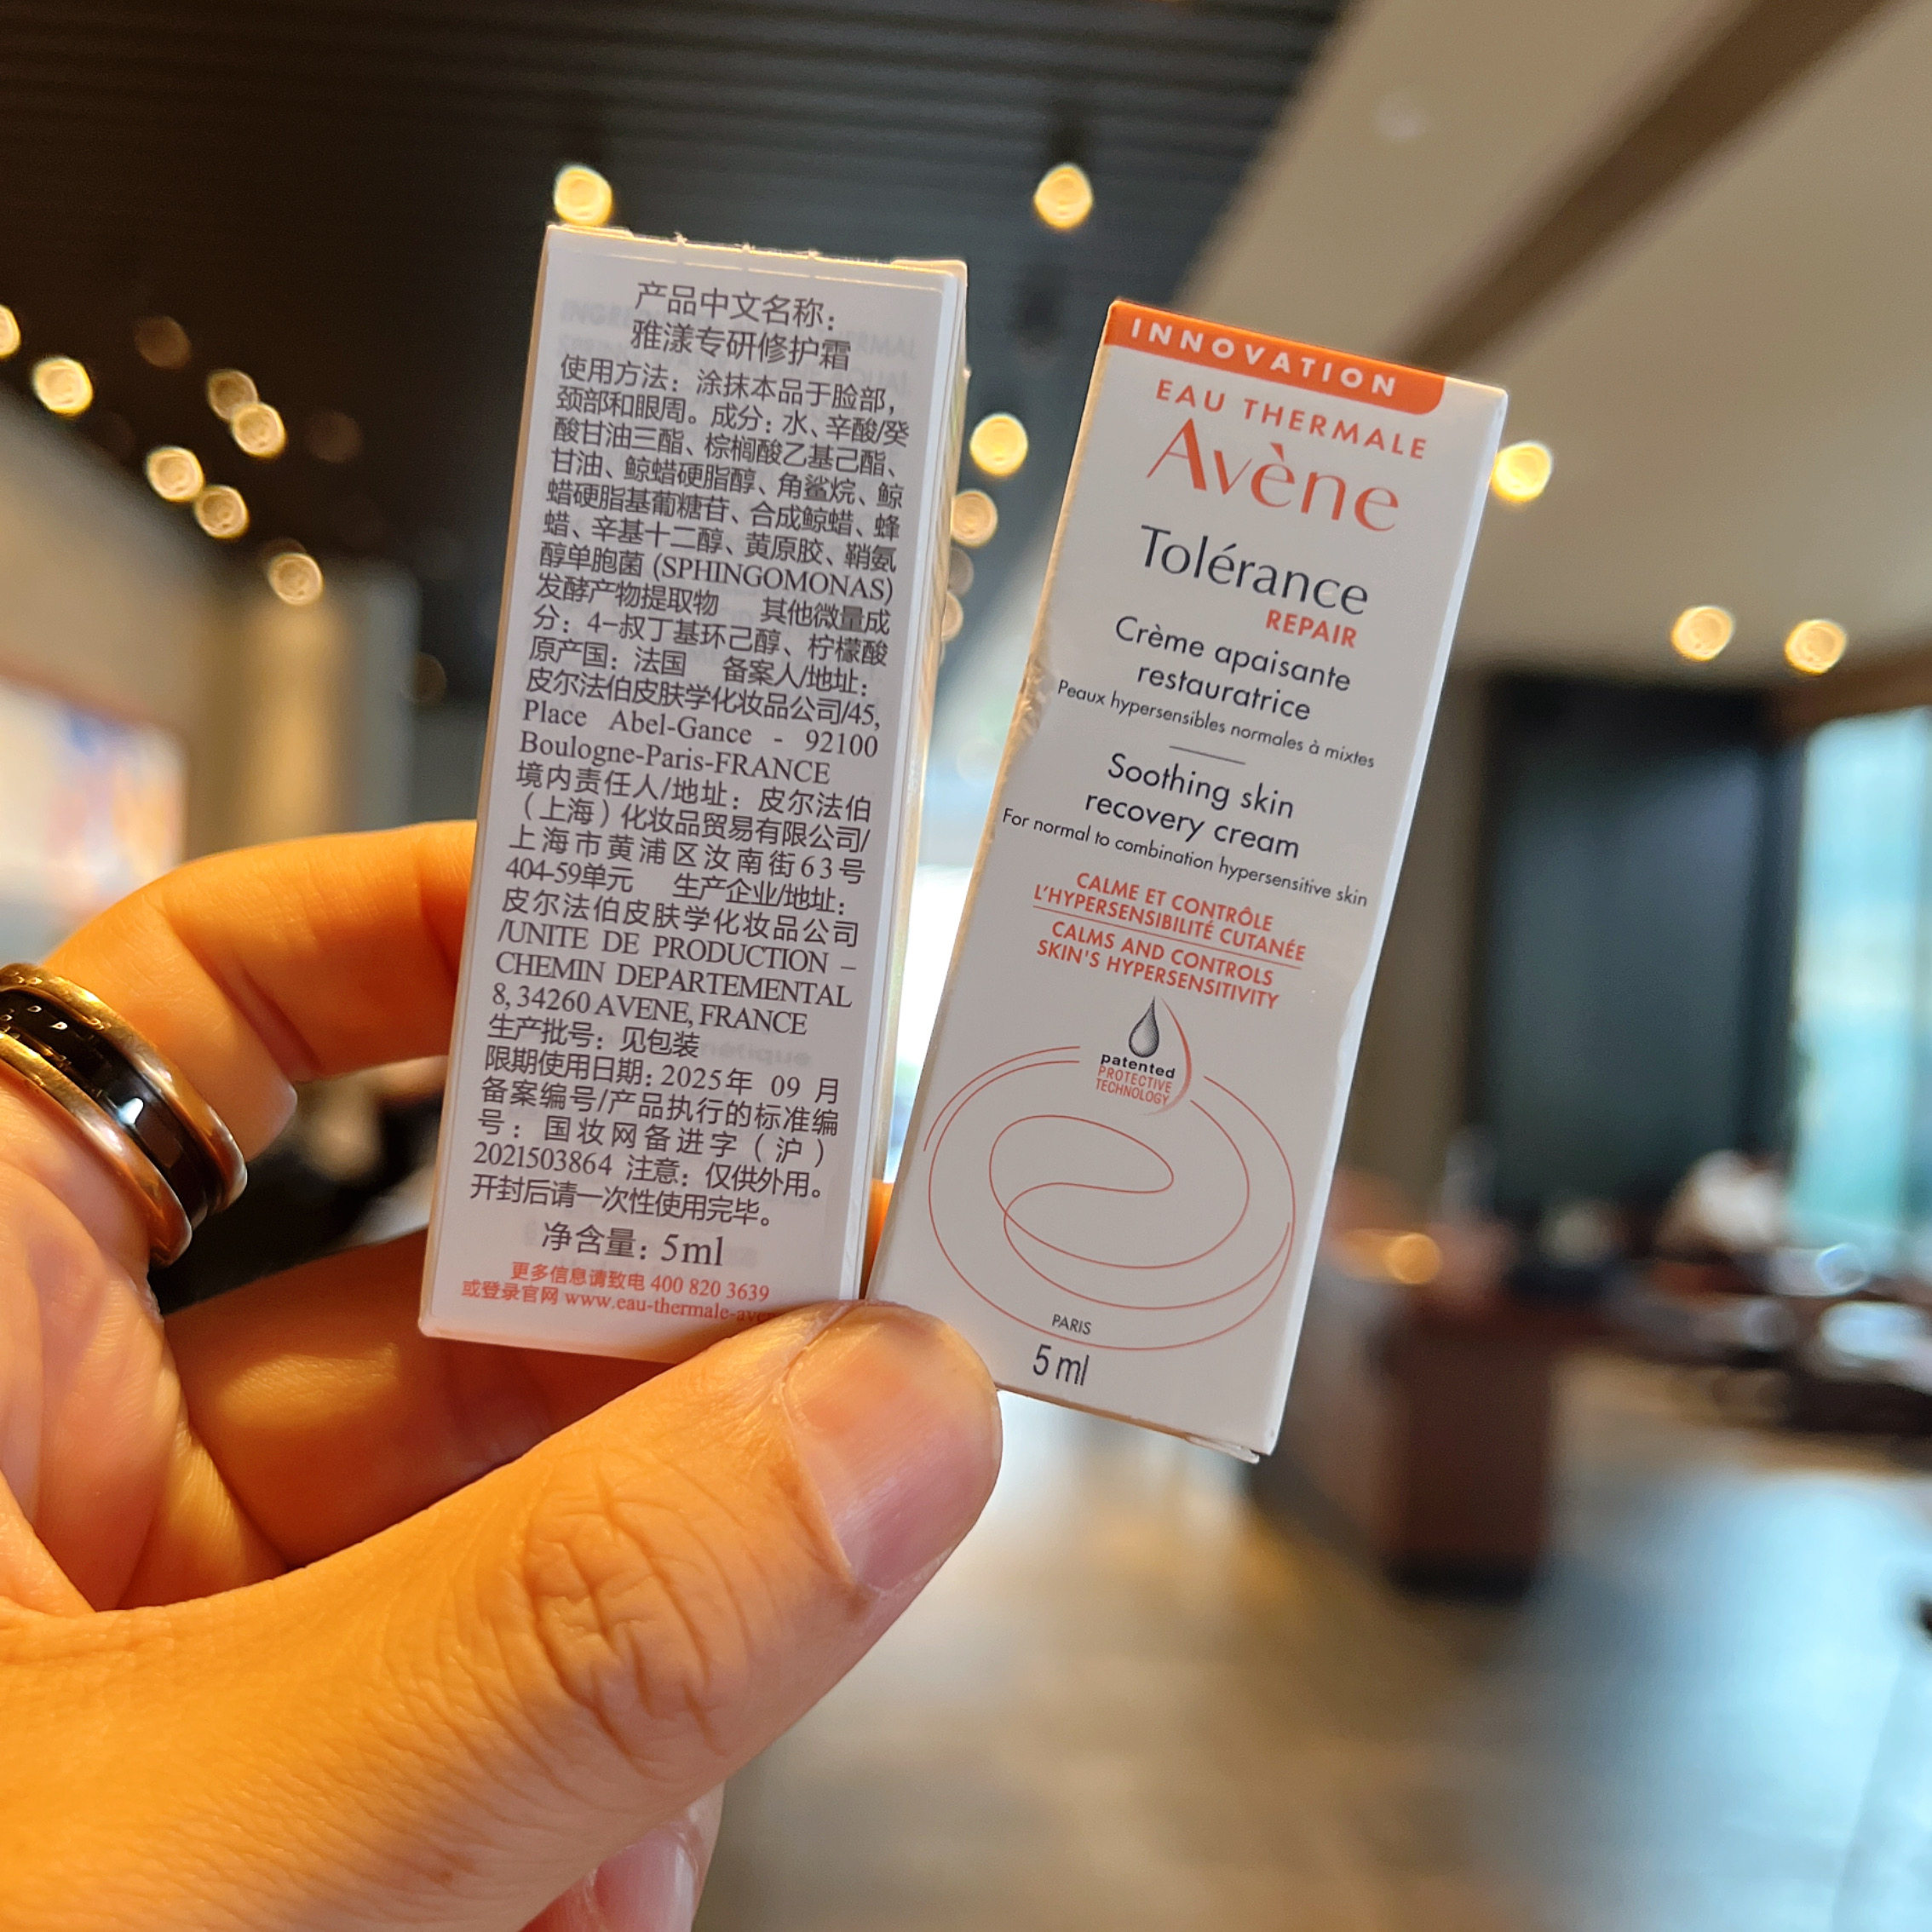 产品中文名称：
雅漾专研修护霜
使用方法：涂抹本品于脸部，
颈部和眼周。成分：水、辛酸/癸
酸甘油三酯、棕榈酸乙基己酯、
甘油、鲸蜡硬脂醇、角鲨烷、鲸
蜡硬脂基葡糖苷、合成鲸蜡、蜂
蜡、辛基十二醇、黄原胶、鞘氨
醇单胞菌 (SPHINGOMONAS)
发酵产物提取物 其他微量成
分：4-叔丁基环己醇、柠檬酸
原产国：法国 备案人/地址：
皮尔法伯皮肤学化妆品公司/45,
Place Abel-Gance - 92100
Boulogne-Paris-FRANCE
境内责任人/地址：皮尔法伯
（上海）化妆品贸易有限公司/
上海市黄浦区汝南街63号
404-59单元 生产企业/地址：
皮尔法伯皮肤学化妆品公司
/UNITE DE PRODUCTION –
CHEMIN DEPARTEMENTAL
8, 34260 AVENE, FRANCE
生产批号：见包装
限期使用日期：2025年 09 月
备案编号/产品执行的标准编
号：国妆网备进字（沪）
2021503864 注意：仅供外用。
开封后请一次性使用完毕。
净含量：5ml
更多信息请致电 400 820 3639
或登录官网 www.eau-thermale-ave
INNOVATION
EAU THERMALE
Avène
Tolérance
REPAIR
Crème apaisante
restauratrice
Peaux hypersensibles normales à mixtes
Soothing skin
recovery cream
For normal to combination hypersensitive skin
CALME ET CONTRÔLE
L'HYPERSENSIBILITÉ CUTANÉE
CALMS AND CONTROLS
SKIN'S HYPERSENSITIVITY
patented
PROTECTIVE
TECHNOLOGY
PARIS
5 ml